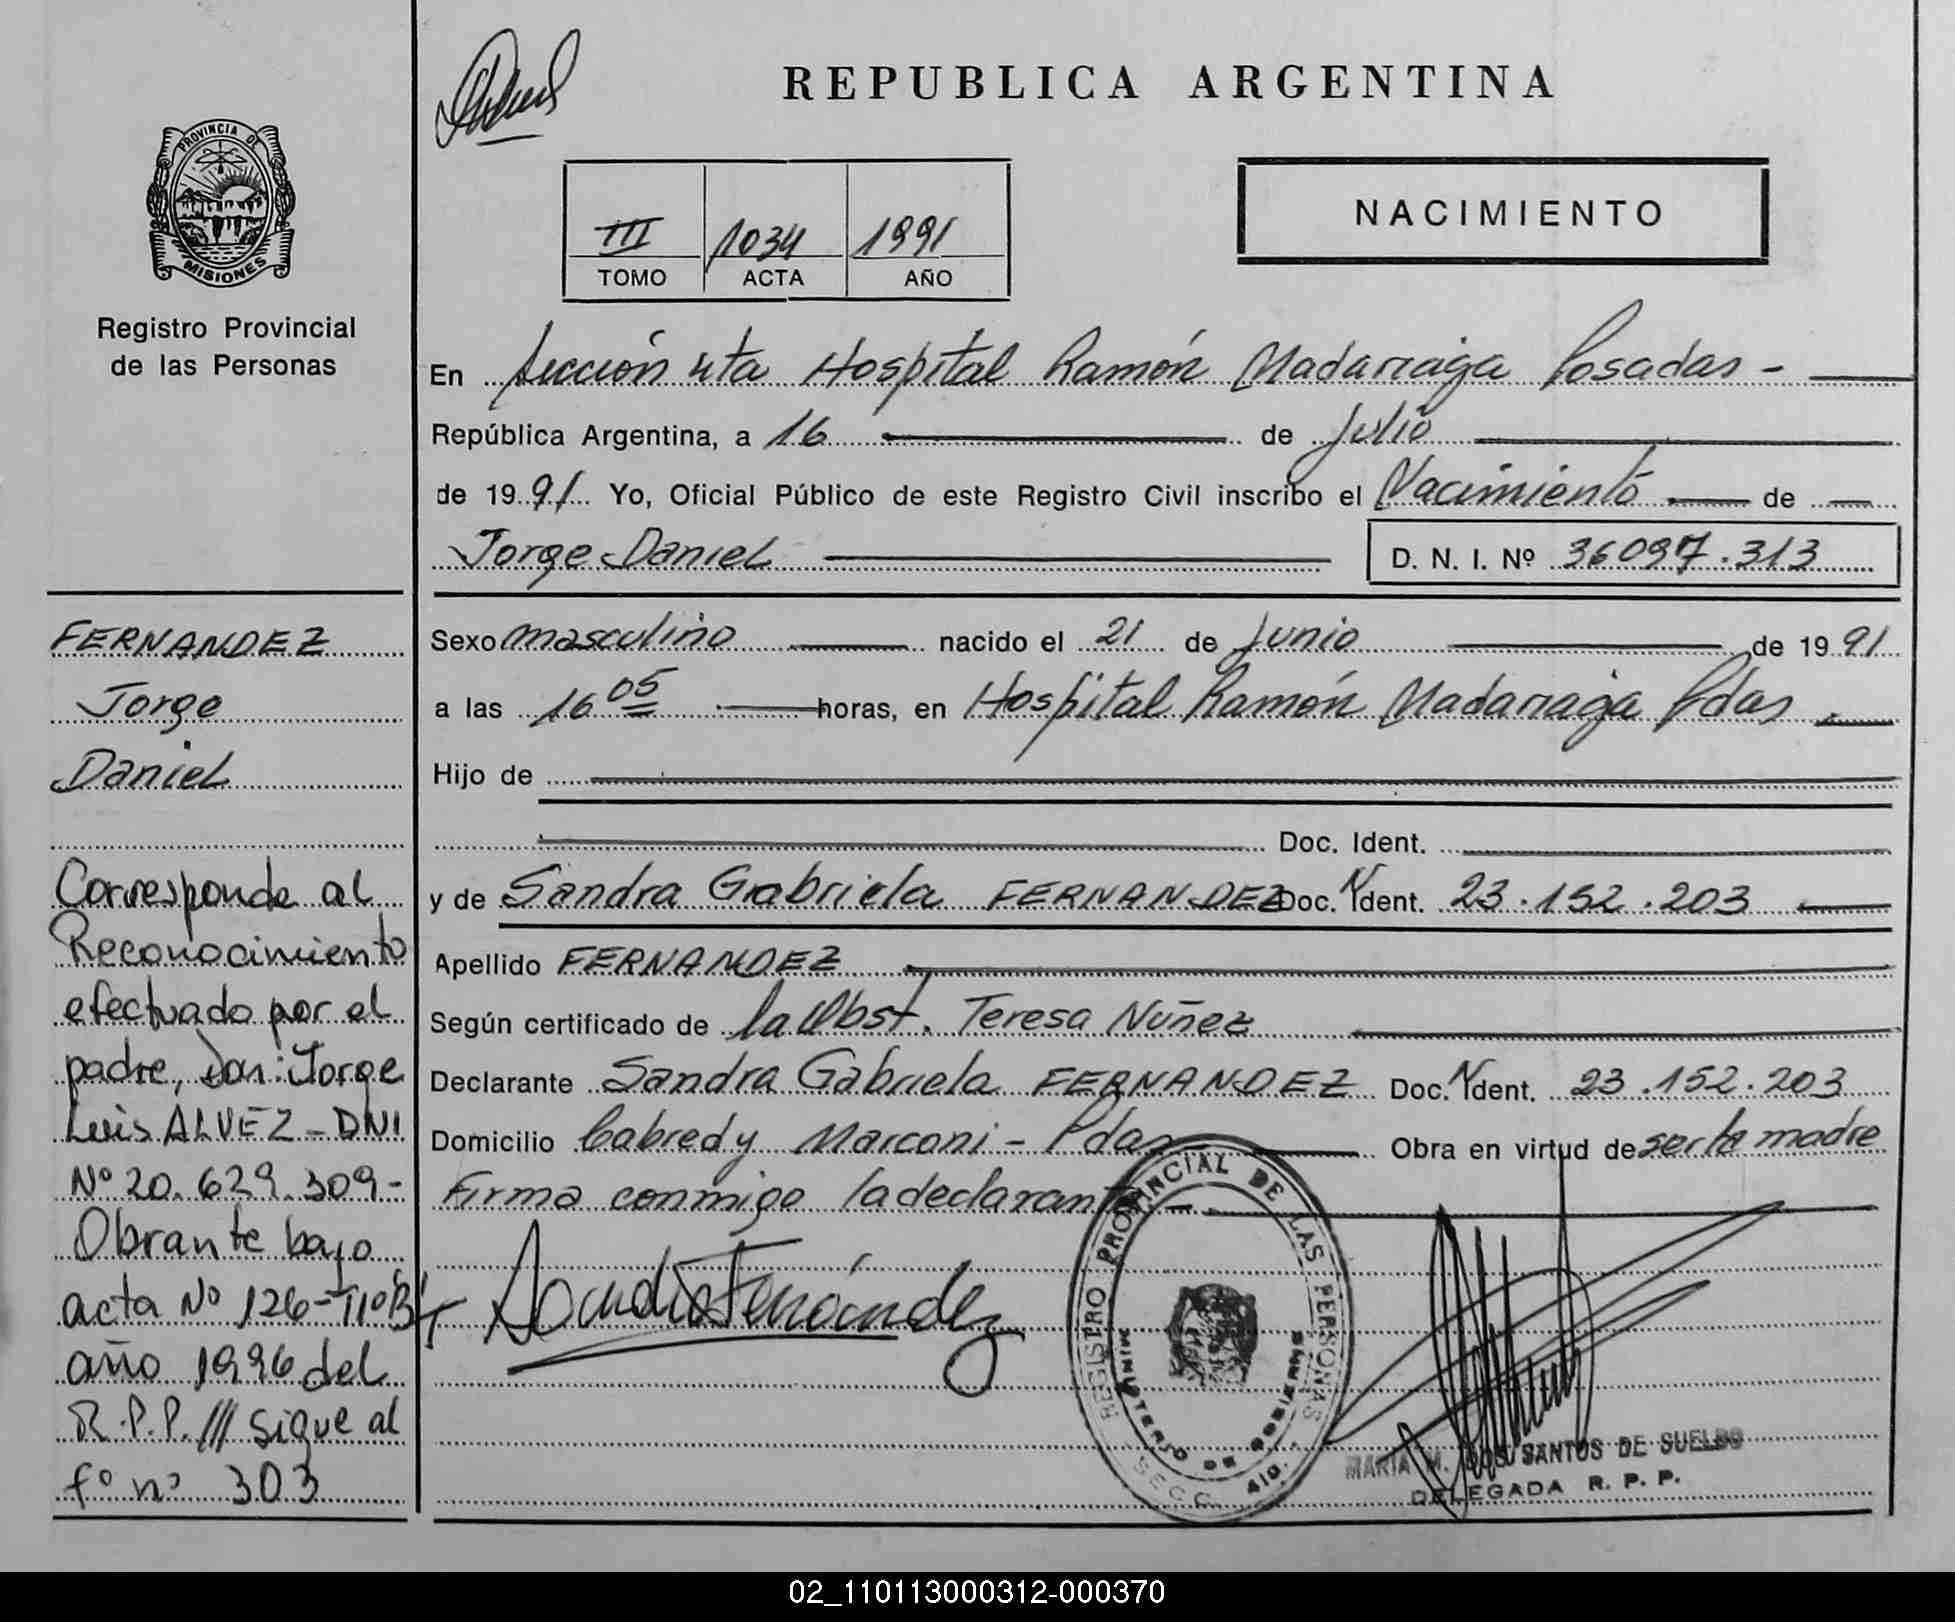 REPUBLICA ARGENTINA
PROVINCIA DE
MISIONES
Registro Provincial
de las Personas
III 1034 1991
TOMO ACTA AÑO
NACIMIENTO
En Sección 4ta Hospital Ramón Madariaga Posadas -
República Argentina, a 16 de Julio
de 1991 Yo, Oficial Público de este Registro Civil inscribo el Nacimiento de
Jorge Daniel D. N. I. Nº 36097.313
Sexo masculino nacido el 21 de Junio de 1991
a las 16 05 horas, en Hospital Ramón Madariaga Pdas
Hijo de
Doc. Ident.
y de Sandra Gabriela FERNANDEZ Doc. Ident. 23.152.203
Apellido FERNANDEZ
Según certificado de la Obst. Teresa Nuñez
Declarante Sandra Gabriela FERNANDEZ Doc. Ident. 23.152.203
Domicilio Cabred y Marconi - Pdas Obra en virtud de ser la madre
Firma conmigo la declarante
Sandra Fernández
REGISTRO PROVINCIAL DE LAS PERSONAS
MINISTERIO DE GOBIERNO
SECC. 4ta.
MARIA M. DOS SANTOS DE SUELDO
DELEGADA R. P. P.
FERNANDEZ
Jorge
Daniel
Corresponde al
Reconocimiento
efectuado por el
padre, Don: Jorge
Luis ALVEZ - DNI
Nº 20.629.309-
Obrante bajo
acta Nº 126-
año 1996 del
R.P.P. /// sigue al
fº nº 303
02_110113000312-000370